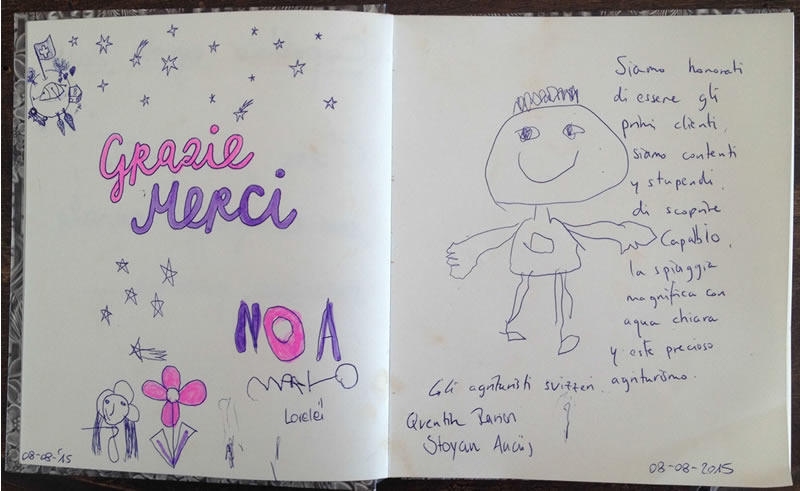 Grazie
Merci
NOA
Lorelei
08-08-'15
Siamo honorati
di essere gli
primi clienti,
siamo contenti
y stupendi,
di scoprire
Capalbio,
la spiaggia
magnifica con
agua chiara
y este precioso
agriturismo.
Gli agrituristi svizzeri.
Quentin
Stoyan
08-08-2015